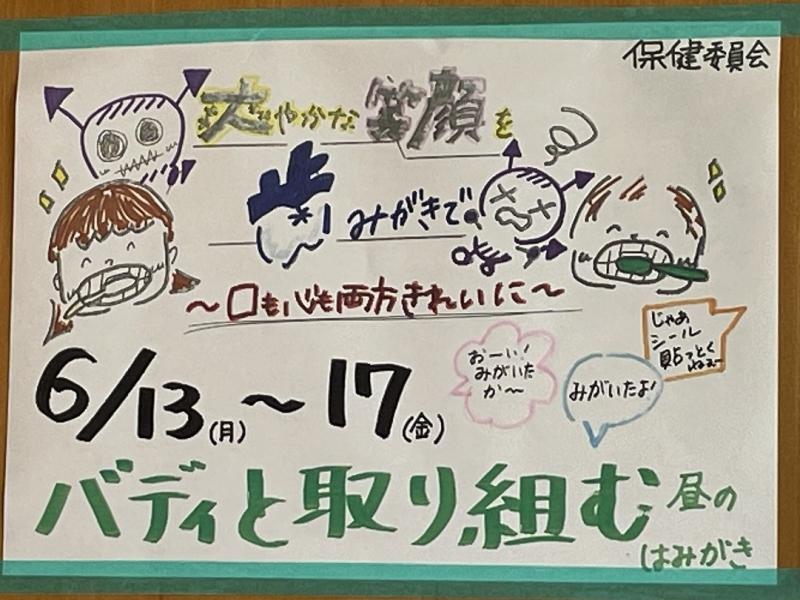 保健委員会
爽やかな笑顔を
歯みがきで。
～口も心も両方きれいに～
6/13(月)～17(金)
おーい！
みがいた
か～
みがいたよ！
じゃあ
シール
貼っとく
ねぇー
バディと取り組む昼の
はみがき